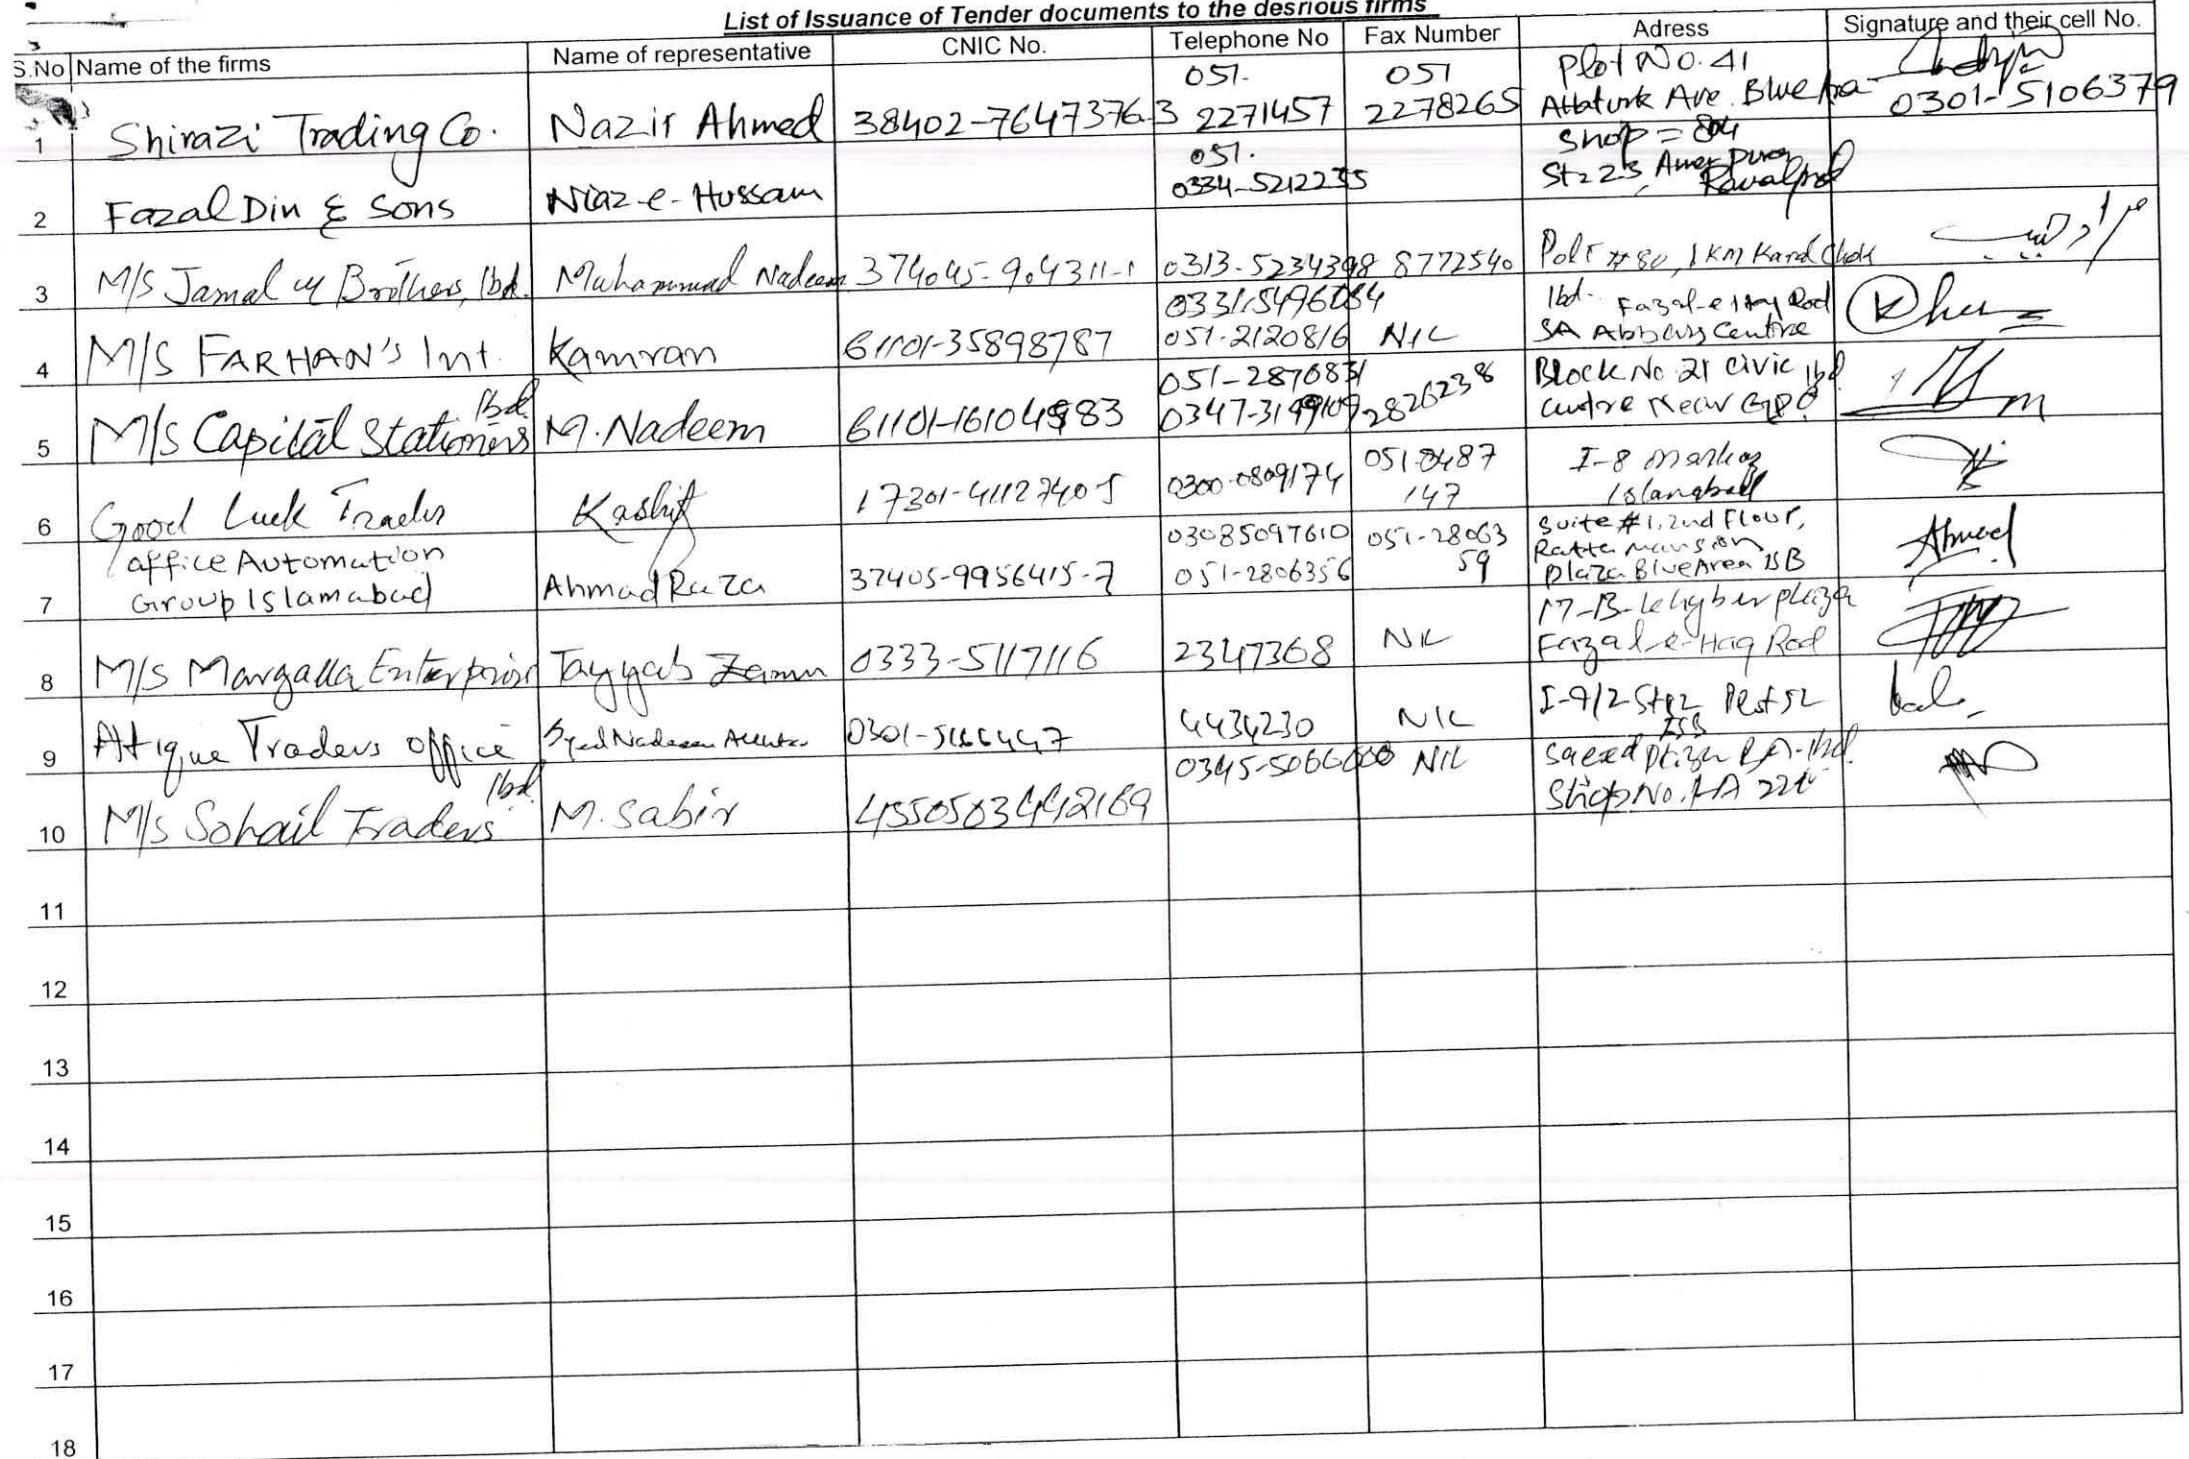 List of Issuance of Tender documents to the desrious firms
S.No Name of the firms Name of representative CNIC No. Telephone No Fax Number Adress Signature and their cell No.
1 Shirazi Trading Co. Nazir Ahmed 38402-7647376-3 051. 2271457 051 2278265 Plot No. 41
Attaturk Ave. Blue Area 0301-5106379
2 Fazal Din & Sons Niaz-e-Hussain 051. 0334-5212235 Shop = 804
St= 23
3 M/S Jamal Brothers, Ibd. Muhammad Nadeem 0313-5234398 8772540
4 M/S FARHAN'S Int. Kamran 61101-35898787 051-2120816 NIL Ibd. Fazal-e-Haq Rod
SA Abbass Centre
5 M/S Capital Stationers Ibd. M. Nadeem 051-2876831
Block No. 21 Civic Ibd
Centre Near GPO
6 Good Luck Trader Kashif 17301-41127405 0300-0809174 I-8 Markaz
Islamabad
7 office Automation
Group Islamabad Ahmad Raza 37405-9956415-7 03085097610
051-2806356 051-28063
59 Suite #1, 2nd Flour,
Ratta Mansion
Plaza Blue Area ISB Ahmed
8 M/S Margalla Enterprise Tayyab 0333-5117116 2347368 NIL plaza
Fazal-e-Haq Rod
9 Attique Traders office Syed Nadeem 4434230 NIL I-9/2
ISB
10 M/S Sohail Traders Ibd. M. Sabir NIL Saeed
Shop No.
11
12
13
14
15
16
17
18